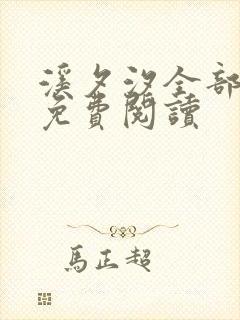 溪夕汐全部
免費閱讀
馬正超